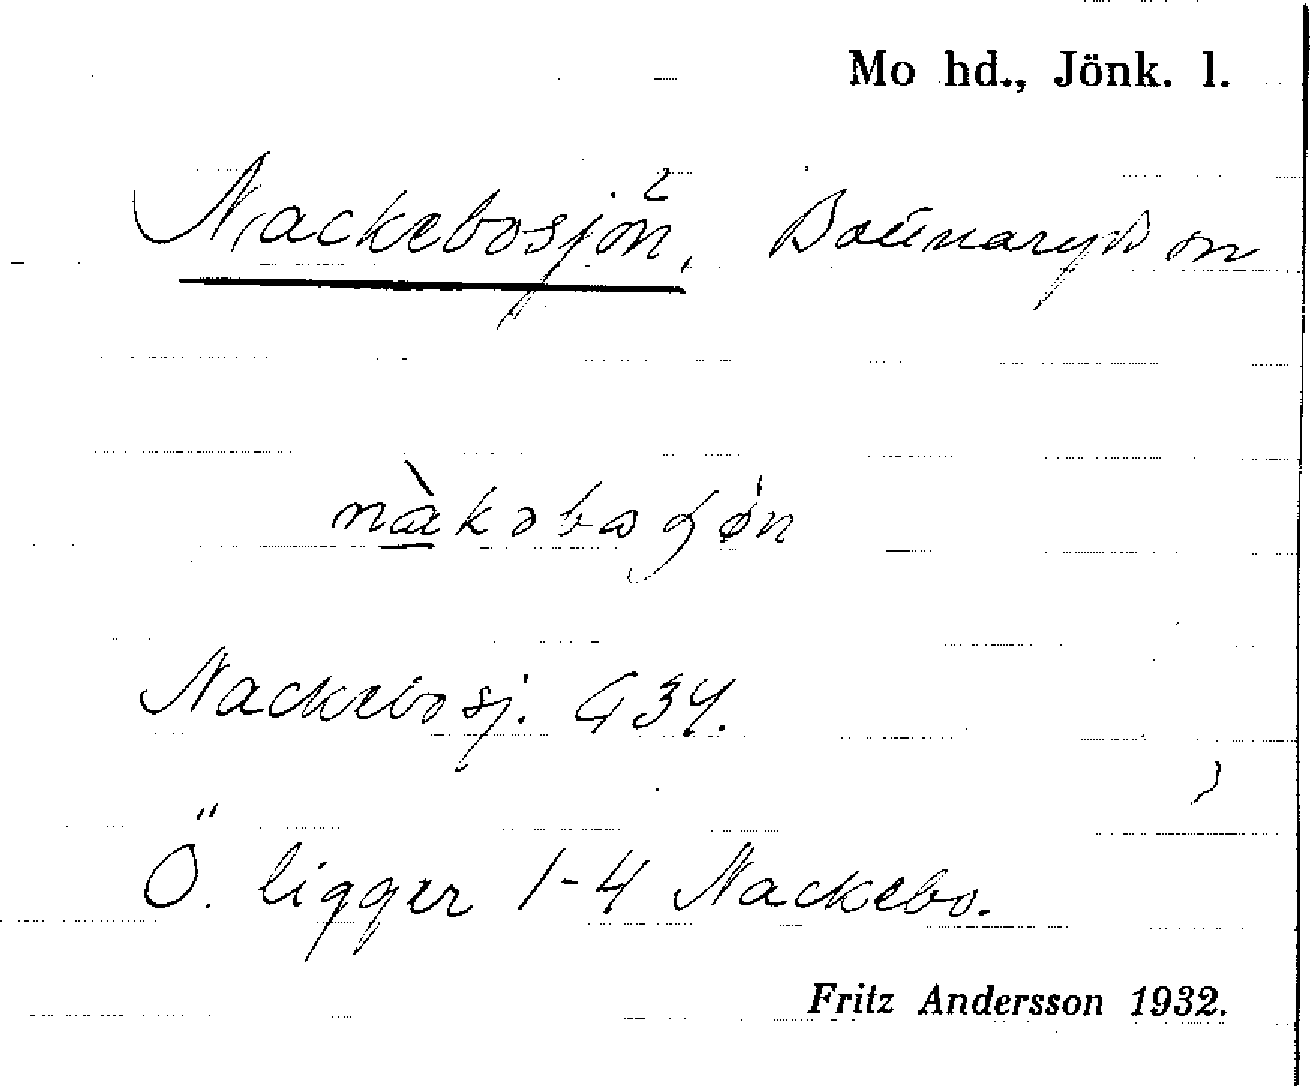 Mo hd., Jönk. l.
Nackebosjön, Bottnaryd sn
nàkəboʃø̀n
Nackebosj. G 34.
Ö. ligger 1-4 Nackebo.
Fritz Andersson 1932.